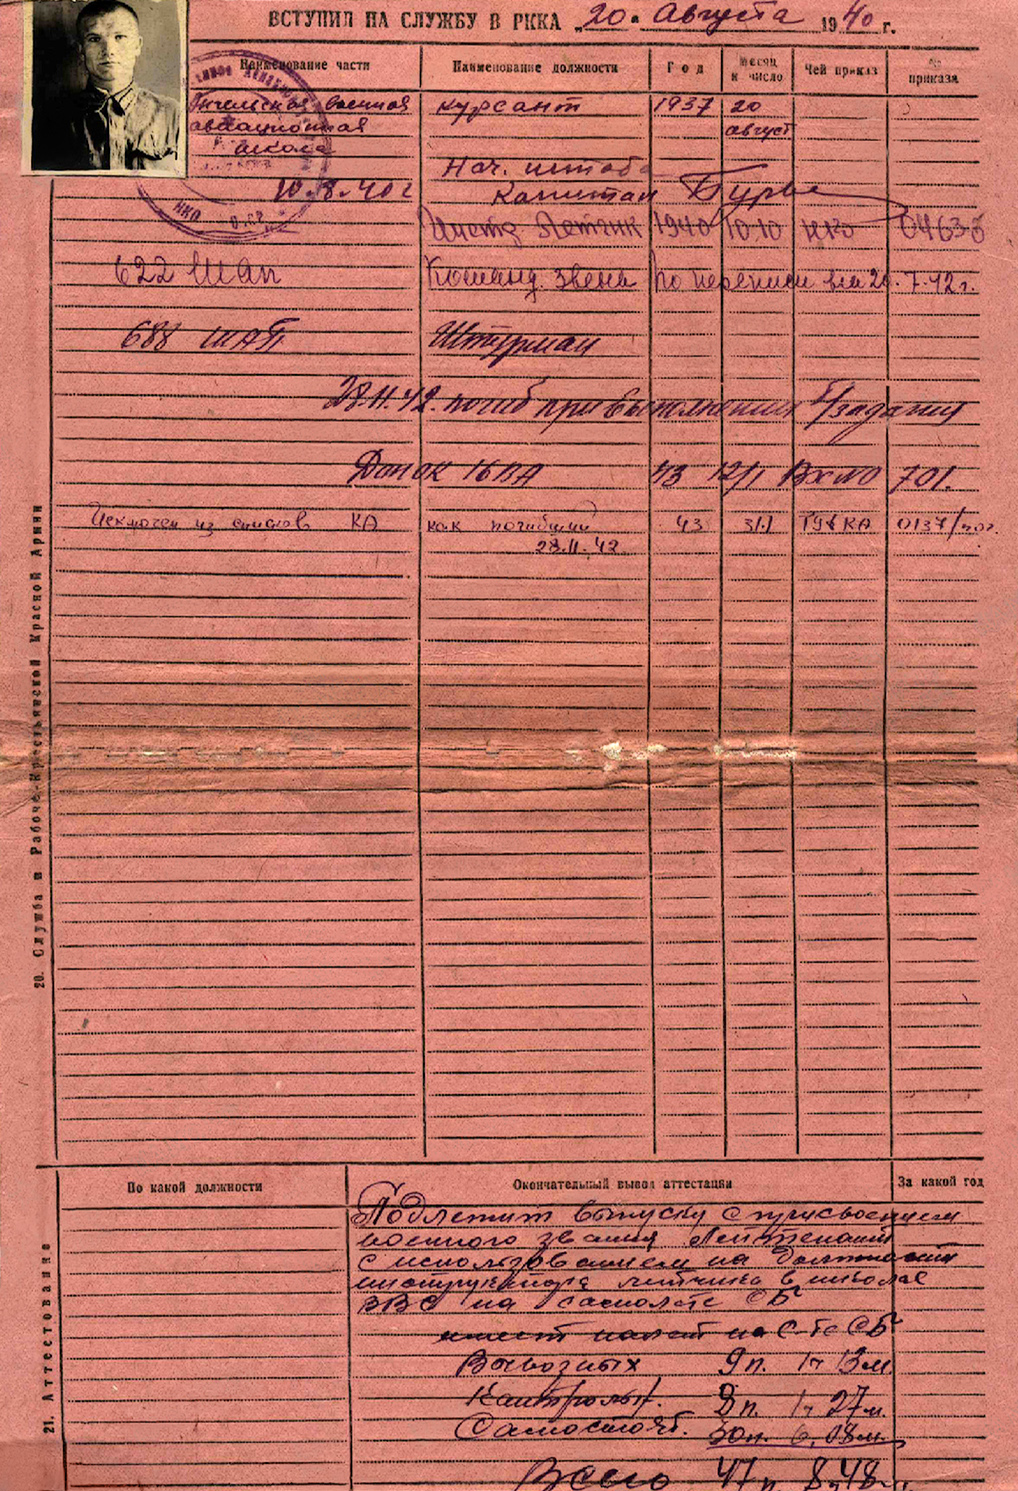 ВСТУПИЛ НА СЛУЖБУ В РККА „20" Августа 1940 г.
Наименование части Наименование должности Год Месяц и число Чей приказ № приказа
военная курсант 1937 20
авиационная август
школа
Нач. штаба
10.8.40г Капитан
Летчик 1940 10.10 НКО 04635
622 Шап Команд. звена По переписи на 20.7.42г.
688 ШАП Штурман
28.11.42. погиб при выполнении б/задания
Донок 16 ВА 43 12/1 Вх№ 701.
Исключен из списков КА как погибший 43 31.1 ГУК КА 0137/пог.
28.11.42
20. Служба в Рабоче-Крестьянской Красной Армии
По какой должности Окончательный вывод аттестации За какой год
21. Аттестование
Подлежит выпуску с присвоением
военного звания Лейтенант
с использованием на должности
инструктора летчика в школе
ВВС на самолете СБ
имеет налет на С-те СБ
Вывозных 9п. 1ч 13м
Контрольн. 8п. 1ч 27м.
Самостоят. 30п. 6,08м.
Всего 47п 8ч48м